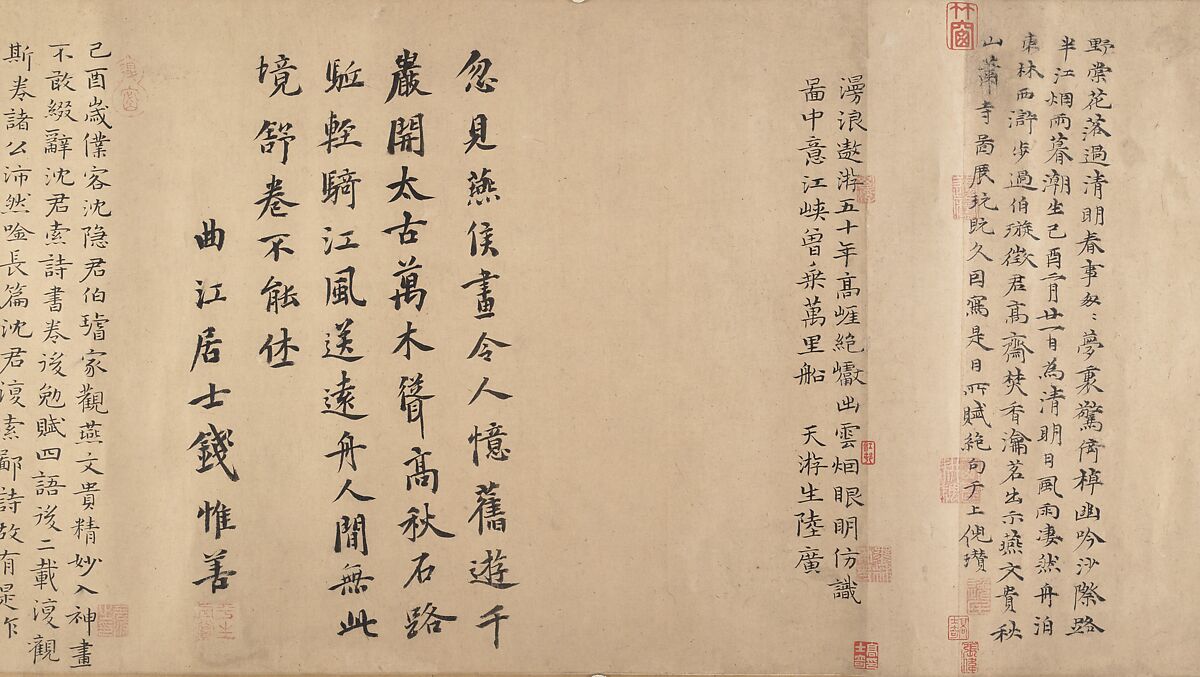 野棠花落過清明春事匆〻夢裏驚倚棹幽吟沙際路
半江烟雨暮潮生己酉二月廿一日為清明日風雨凄然舟泊
東林西滸步過伯璇徵君高齋焚香瀹茗出示燕文貴秋
山蕭寺啚展玩既久因寫是日所賦絶句于上倪瓚
漫浪遨游五十年高崖絶巘出雲烟眼明仿識
啚中意江峽曾乘萬里船 天游生陸廣
忽見燕侯畫令人憶舊遊千
巖開太古萬木聳高秋石路
輕騎江風送遠舟人間無此
境舒卷不能休
曲江居士錢惟善
己酉歲僕客沈隐君伯璿家觀燕文貴精妙入神畫
不敢綴辭沈君索詩書卷後勉賦四語後二載復觀
斯卷諸公沛然唫長篇沈君復索鄙詩故有是乍
林窗